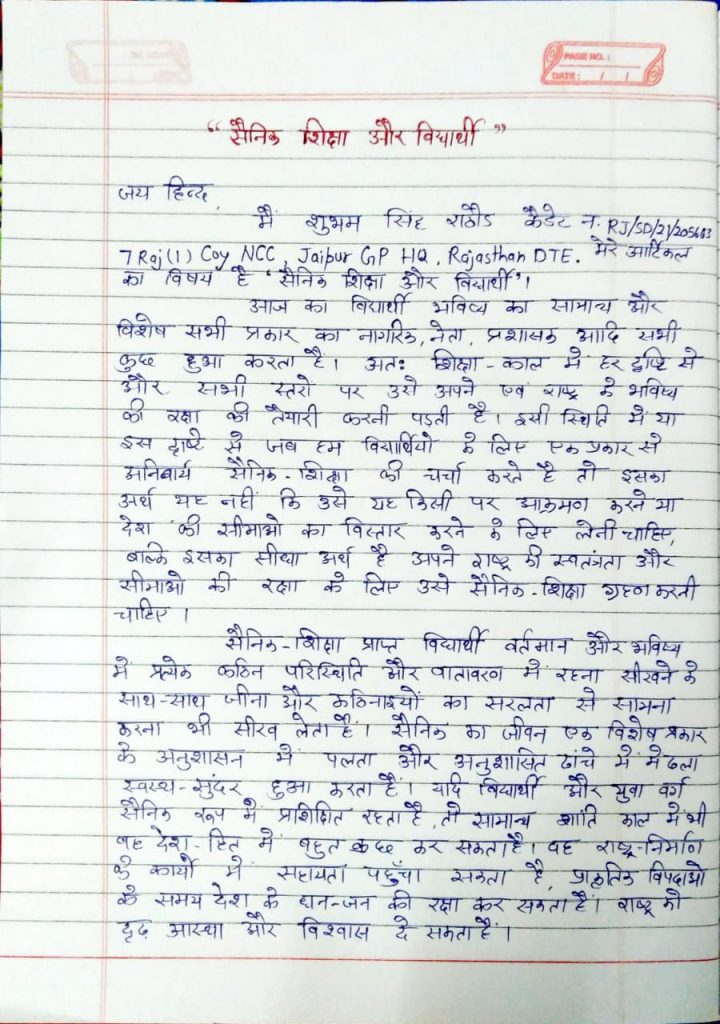 PAGE NO. :
DATE : / /
“सैनिक शिक्षा और विद्यार्थी”
जय हिन्द,
मैं शुभम सिंह राठौड कैडेट न. RJ/SD/21/205683
7 Raj (1) Coy NCC, Jaipur GP HQ, Rajasthan DTE. मेरे आर्टिकल
का विषय है 'सैनिक शिक्षा और विद्यार्थी'।
आज का विद्यार्थी भविष्य का सामान्य और
विशेष सभी प्रकार का नागरिक, नेता, प्रशासक आदि सभी
कुछ हुआ करता है। अतः शिक्षा-काल में हर दृष्टि से
और सभी स्तरो पर उसे अपने एवं राष्ट्र के भविष्य
की रक्षा की तैयारी करनी पड़ती है। इसी स्थिति में या
इस दृष्टि से जब हम विद्यार्थियो के लिए एक प्रकार से
अनिवार्य सैनिक-शिक्षा की चर्चा करते है तो इसका
अर्थ यह नहीं कि उसे यह किसी पर आक्रमण करने या
देश की सीमाओ का विस्तार करने के लिए लेनी चाहिए,
बल्कि इसका सीधा अर्थ है अपने राष्ट्र की स्वतंत्रता और
सीमाओ की रक्षा के लिए उसे सैनिक-शिक्षा ग्रहण करनी
चाहिए।
सैनिक-शिक्षा प्राप्त विद्यार्थी वर्तमान और भविष्य
मे प्रत्येक कठिन परिस्थिति और वातावरण में रहना सीखने के
साथ-साथ जीना और कठिनाइयों का सरलता से सामना
करना भी सीख लेता है। सैनिक का जीवन एक विशेष प्रकार
के अनुशासन में पलता और अनुशासित ढांचे में मे ढला
स्वस्थ-सुंदर हुआ करता है। यदि विद्यार्थी और युवा वर्ग
सैनिक रूप में प्रशिक्षित रहता है, तो सामान्य शांति काल में भी
वह देश-हित में बहुत कुछ कर सकता है। वह राष्ट्र-निर्माण
के कार्यो में सहायता पहुँचा सकता है, प्राकृतिक विपदाओ
के समय देश के धन-जन की रक्षा कर सकता है। राष्ट्र को
दृढ़ आस्था और विश्वास दे सकता है।